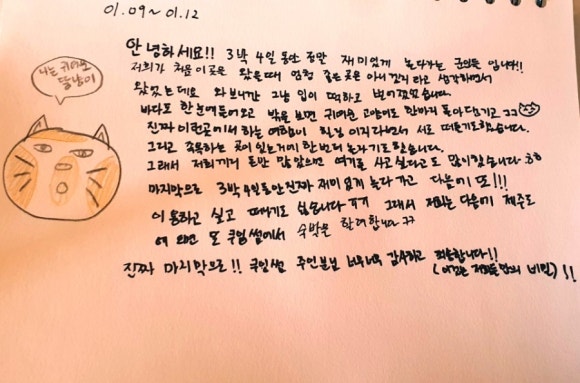 01.09~01.12
나는 귀여운
뚱냥이
안녕하세요!! 3박 4일동안 정말 재미있게 놀다가는 군인들 입니다!!
저희가 처음 이곳은 왔을때 엄청 좋은곳은 아니겠지 라고 생각하면서
왔었는데요 와보니깐 그냥 입이 떡하고 벌어졌었습니다.
바다도 한눈에 들어오고 밖을 보면 귀여운 고양이도 한마리 돌아다니고 ㅋㅋ
진짜 이런곳에서 하는 여행이 힐링 이지라면서 서로 떠들기도했습니다.
그리고 족욕하는 곳이 있는거에 한번더 놀라기도했습니다.
그래서 저희끼리 돈만 많았으면 여기를 사고싶다고도 많이했습니다 ㅎㅎ
마지막으로 3박4일동안 진짜 재미있게 놀다 가고 다음에 또!!!
이용하고 싶고 떠나기도 싫습니다 ㅠㅠ 그래서 저희는 다음에 제주도
에 오면 또 쿠임썸에서 숙박을 할려합니다 ㅋㅋ
진짜 마지막으로!! 쿠임썸 주인분님 너무너무 감사하고 죄송합니다!!
(이건는 저희들만의 비밀)!!